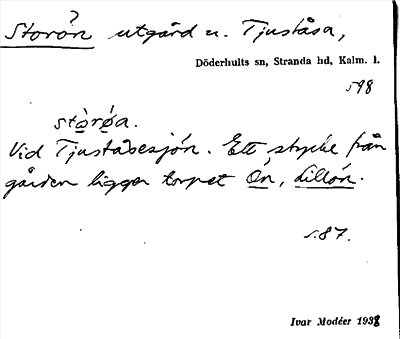 Storön ? utgård u. Tjuståsa,
Döderhults sn, Stranda hd, Kalm. l.
598
stòrǿa.
Vid Tjuståsesjön. Ett stycke från
gården ligger torpet Ön, Lillön.
s. 87.
Ivar Modéer 1938